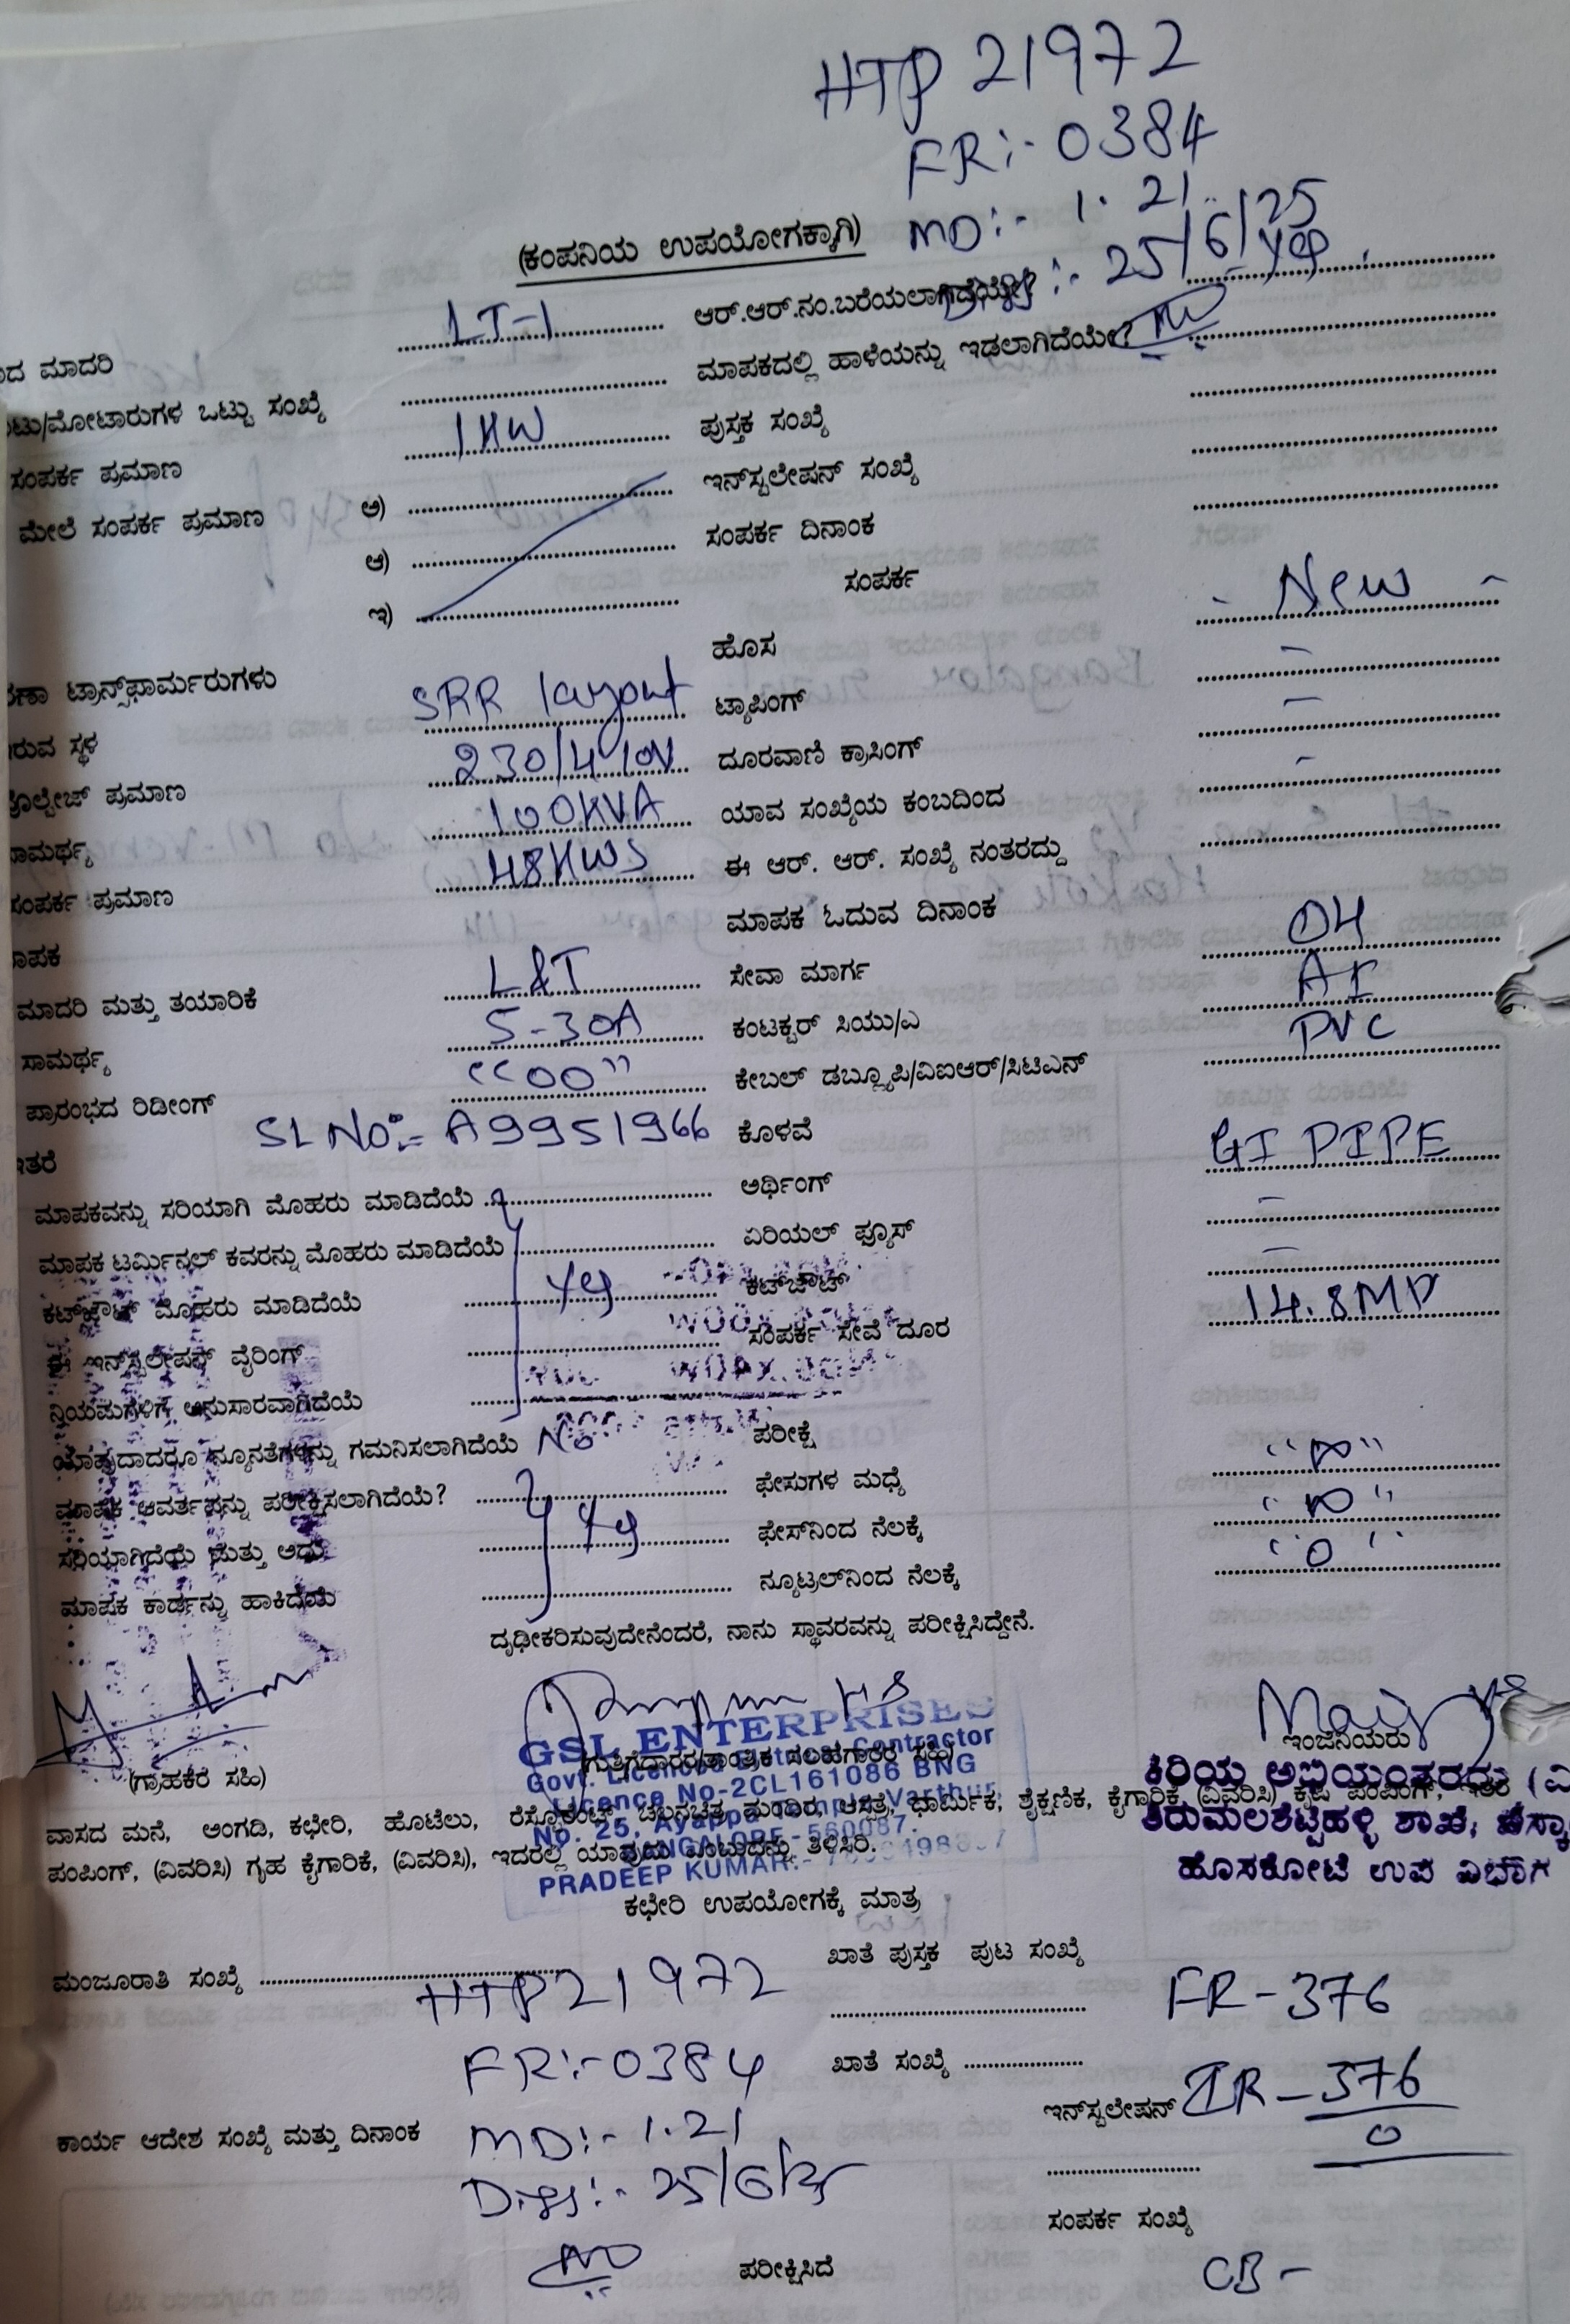 HTP 21972
FR:- 0384
MD:- 1.21
25/6/25
(ಕಂಪನಿಯ ಉಪಯೋಗಕ್ಕಾಗಿ)
ಮಾದರಿ LT-1 ಆರ್.ಆರ್.ನಂ.ಬರೆಯಲಾಗಿದೆಯೇ?
/ಮೋಟಾರುಗಳ ಒಟ್ಟು ಸಂಖ್ಯೆ ಮಾಪಕದಲ್ಲಿ ಹಾಳೆಯನ್ನು ಇಡಲಾಗಿದೆಯೇ?
ಸಂಪರ್ಕ ಪ್ರಮಾಣ 1KW ಪುಸ್ತಕ ಸಂಖ್ಯೆ
ಮೇಲೆ ಸಂಪರ್ಕ ಪ್ರಮಾಣ ಅ) ಇನ್‌ಸ್ಟಲೇಷನ್ ಸಂಖ್ಯೆ
ಆ) ಸಂಪರ್ಕ ದಿನಾಂಕ
ಇ) ಸಂಪರ್ಕ - New -
ಹೊಸ -
ಟ್ರಾನ್ಸ್‌ಫಾರ್ಮರುಗಳು SRR layout ಟ್ಯಾಪಿಂಗ್ -
ಸ್ಥಳ 230/410V ದೂರವಾಣಿ ಕ್ರಾಸಿಂಗ್ -
ಪ್ರಮಾಣ 100KVA ಯಾವ ಸಂಖ್ಯೆಯ ಕಂಬದಿಂದ
48KWS ಈ ಆರ್. ಆರ್. ಸಂಖ್ಯೆ ನಂತರದ್ದು
ಸಂಪರ್ಕ ಪ್ರಮಾಣ ಮಾಪಕ ಓದುವ ದಿನಾಂಕ OH
L&T ಸೇವಾ ಮಾರ್ಗ AI
ಮಾದರಿ ಮತ್ತು ತಯಾರಿಕೆ 5-30A ಕಂಟಕ್ಟರ್ ಸಿಯು/ಎ PVC
ಸಾಮರ್ಥ್ಯ "00" ಕೇಬಲ್ ಡಬ್ಲ್ಯೂಪಿ/ವಿಐಆರ್/ಸಿಟಿಎನ್
ಪ್ರಾರಂಭದ ರಿಡೀಂಗ್ SL No:- A9951966 ಕೊಳವೆ GI PIPE
ಮಾಪಕವನ್ನು ಸರಿಯಾಗಿ ಮೊಹರು ಮಾಡಿದೆಯೆ ಅರ್ಥಿಂಗ್ -
ಮಾಪಕ ಟರ್ಮಿನಲ್ ಕವರನ್ನು ಮೊಹರು ಮಾಡಿದೆಯೆ ಏರಿಯಲ್ ಫ್ಯೂಸ್ -
ಕಟ್‌ಔಟ್ ಮೊಹರು ಮಾಡಿದೆಯೆ ಕಟ್‌ಔಟ್ 14.8MD
ಈ ಇನ್‌ಸ್ಟಲೇಷನ್ ವೈರಿಂಗ್ ಸಂಪರ್ಕ ಸೇವೆ ದೂರ
ನಿಯಮಗಳಿಗೆ ಅನುಸಾರವಾಗಿದೆಯೆ
ಯಾವುದಾದರೂ ನ್ಯೂನತೆಗಳನ್ನು ಗಮನಿಸಲಾಗಿದೆಯೆ No ಪರೀಕ್ಷೆ
ಮಾಪಕ ಆವರ್ತವನ್ನು ಪರೀಕ್ಷಿಸಲಾಗಿದೆಯೆ? ಫೇಸುಗಳ ಮಧ್ಯೆ
ಸರಿಯಾಗಿದೆಯೆ ಮತ್ತು ಅದು ಫೇಸ್‌ನಿಂದ ನೆಲಕ್ಕೆ
ಮಾಪಕ ಕಾರ್ಡನ್ನು ಹಾಕಿದೆಯೆ ನ್ಯೂಟ್ರಲ್‌ನಿಂದ ನೆಲಕ್ಕೆ "0"
ದೃಢೀಕರಿಸುವುದೇನೆಂದರೆ, ನಾನು ಸ್ಥಾವರವನ್ನು ಪರೀಕ್ಷಿಸಿದ್ದೇನೆ.
(ಗ್ರಾಹಕರ ಸಹಿ)
GSL ENTERPRISES
Govt. Licenced Electrical Contractor
Licence No-2CL161086 BNG
No. 25, Ayappa Varthur
BANGALORE-560087.
PRADEEP KUMAR:-
ಇಂಜಿನಿಯರು
ಕಿರಿಯ ಅಭಿಯಂತರರು
ತಿರುಮಲಶೆಟ್ಟಿಹಳ್ಳಿ ಶಾಖೆ,
ಹೊಸಕೋಟೆ ಉಪ ವಿಭಾಗ
ವಾಸದ ಮನೆ, ಅಂಗಡಿ, ಕಛೇರಿ, ಹೊಟೆಲು, ರೆಸ್ಟೋರೆಂಟ್ ಚಲನಚಿತ್ರ ಮಂದಿರ, ಆಸ್ಪತ್ರೆ, ಧಾರ್ಮಿಕ, ಶೈಕ್ಷಣಿಕ, ಕೈಗಾರಿಕೆ (ವಿವರಿಸಿ) ಕೃಷಿ ಪಂಪಿಂಗ್, ಇತರೆ
ಪಂಪಿಂಗ್, (ವಿವರಿಸಿ) ಗೃಹ ಕೈಗಾರಿಕೆ, (ವಿವರಿಸಿ), ಇದರಲ್ಲಿ ಯಾವುದು ಎಂಬುದನ್ನು ತಿಳಿಸಿರಿ.
ಕಛೇರಿ ಉಪಯೋಗಕ್ಕೆ ಮಾತ್ರ
ಮಂಜೂರಾತಿ ಸಂಖ್ಯೆ HTP21972 ಖಾತೆ ಪುಸ್ತಕ ಪುಟ ಸಂಖ್ಯೆ FR-376
FR:-0384 ಖಾತೆ ಸಂಖ್ಯೆ
ಇನ್‌ಸ್ಟಲೇಷನ್ IR-376
0
ಕಾರ್ಯ ಆದೇಶ ಸಂಖ್ಯೆ ಮತ್ತು ದಿನಾಂಕ MD:-1.21
25/6/25
ಸಂಪರ್ಕ ಸಂಖ್ಯೆ
ಪರೀಕ್ಷಿಸಿದೆ CB-